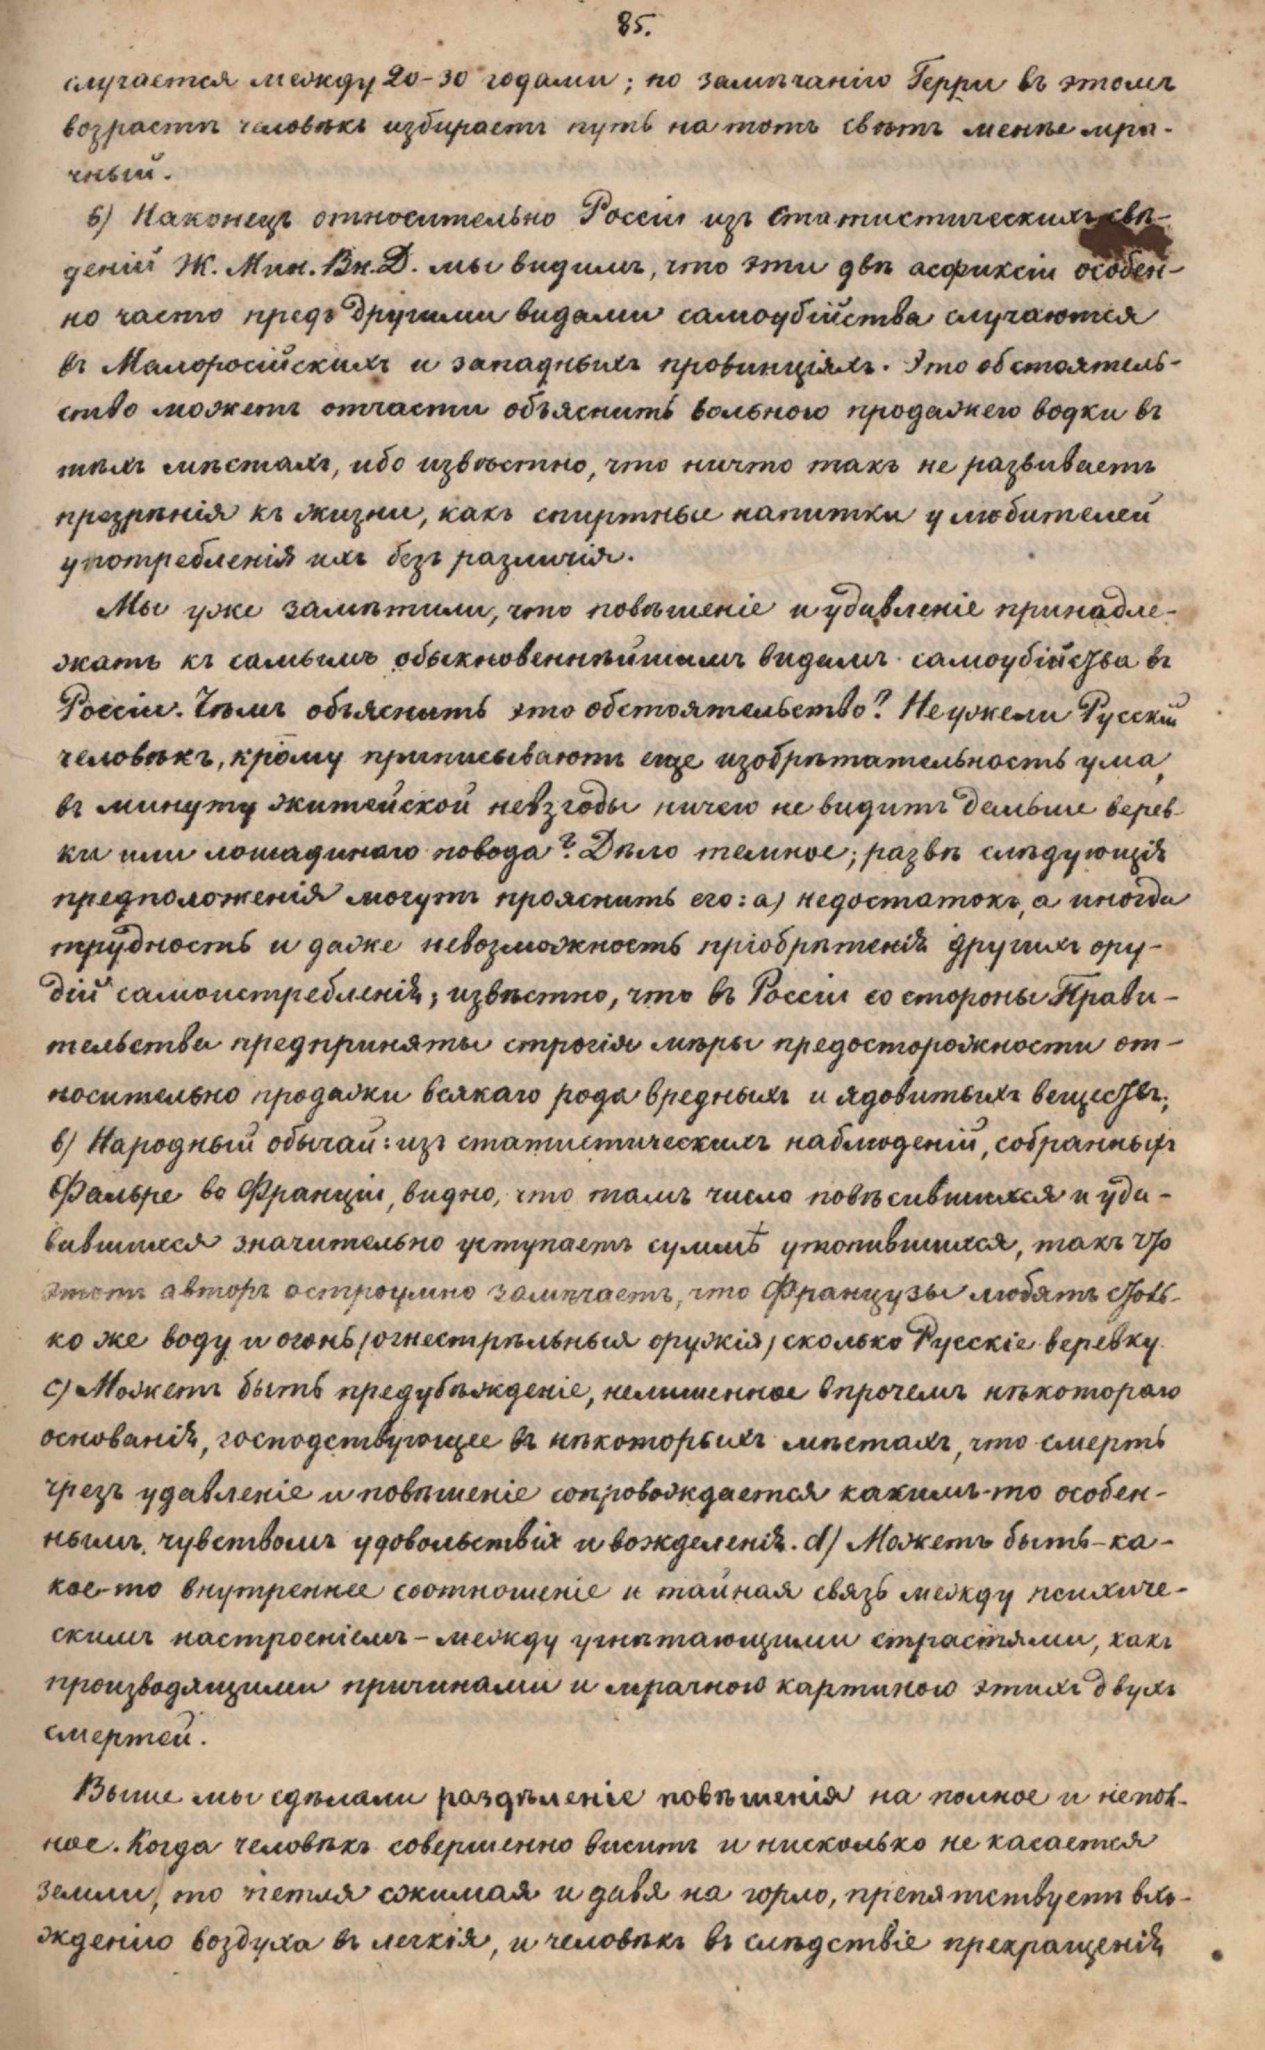 85.
случается между 20–30 годами; по замѣчанію Герри въ этомъ
возрастѣ человѣкъ избираетъ путь на тотъ свѣтъ менѣе мра-
чный.
б) Наконецъ относительно Россіи изъ статистическихъ свѣ-
деній Ж. Мин. Вн. Д. мы видимъ, что эти двѣ асфиксіи особен-
но часто предъ другими видами самоубійства случаются
въ Малоросійскихъ и западныхъ провинціяхъ. Это обстоятель-
ство можетъ отчасти объяснить вольною продажею водки въ
тѣхъ мѣстахъ, ибо извѣстно, что ничто такъ не развиваетъ
презрѣнія къ жизни, какъ спиртные напитки у любителей
употребленія ихъ безъ различія.
Мы уже замѣтили, что повѣшеніе и удавленіе принадле-
жатъ къ самымъ обыкновеннѣйшимъ видамъ самоубійства въ
Россіи. Чѣмъ объяснить это обстоятельство? Неужели Русскій
человѣкъ, крому приписываютъ еще изобрѣтательность ума,
въ минуту житейской невзгоды ничего не видитъ дальше верев-
ки или лошадинаго повода? Дѣло темное; развѣ слѣдующія
предположенія могутъ прояснить его: а) недостатокъ, а иногда
трудность и даже невозможность пріобрѣтенія другихъ ору-
дій самоистребленія; извѣстно, что въ Россіи со стороны Прави-
тельства предприняты строгія мѣры предосторожности от-
носительно продажи всякаго рода вредныхъ и ядовитыхъ веществъ;
b) Народный обычай: изъ статистическихъ наблюденій, собранныхъ
Фальре во Франціи, видно, что тамъ число повѣсившихся и уда-
вившихся значительно уступаетъ суммѣ утопившихся, такъ что
этотъ авторъ остроумно замѣчаетъ, что Французы любятъ столь-
ко же воду и огонь (огнестрѣльныя оружія) сколько Русскіе веревку.
c) Можетъ быть предубѣжденіе, нелишенное впрочемъ нѣкотораго
основанія, господствующее въ нѣкоторыхъ мѣстахъ, что смерть
чрезъ удавленіе и повѣшеніе сопровождается какимъ-то особен-
нымъ чувствомъ удовольствія и вожделенія. d) Можетъ быть-ка-
кое-то внутреннее соотношеніе и тайная связь между психиче-
скимъ настроеніемъ – между угнѣтающими страстями, какъ
производящими причинами и мрачною картиною этихъ двухъ
смертей.
Выше мы сдѣлали раздѣленіе повѣшенія на полное и непол-
ное. Когда человѣкъ совершенно виситъ и нисколько не касается
земли, то петля сжимая и давя на горло, препятствуетъ вхо-
жденію воздуха въ легкія, и человѣкъ въ слѣдствіе прекращенія